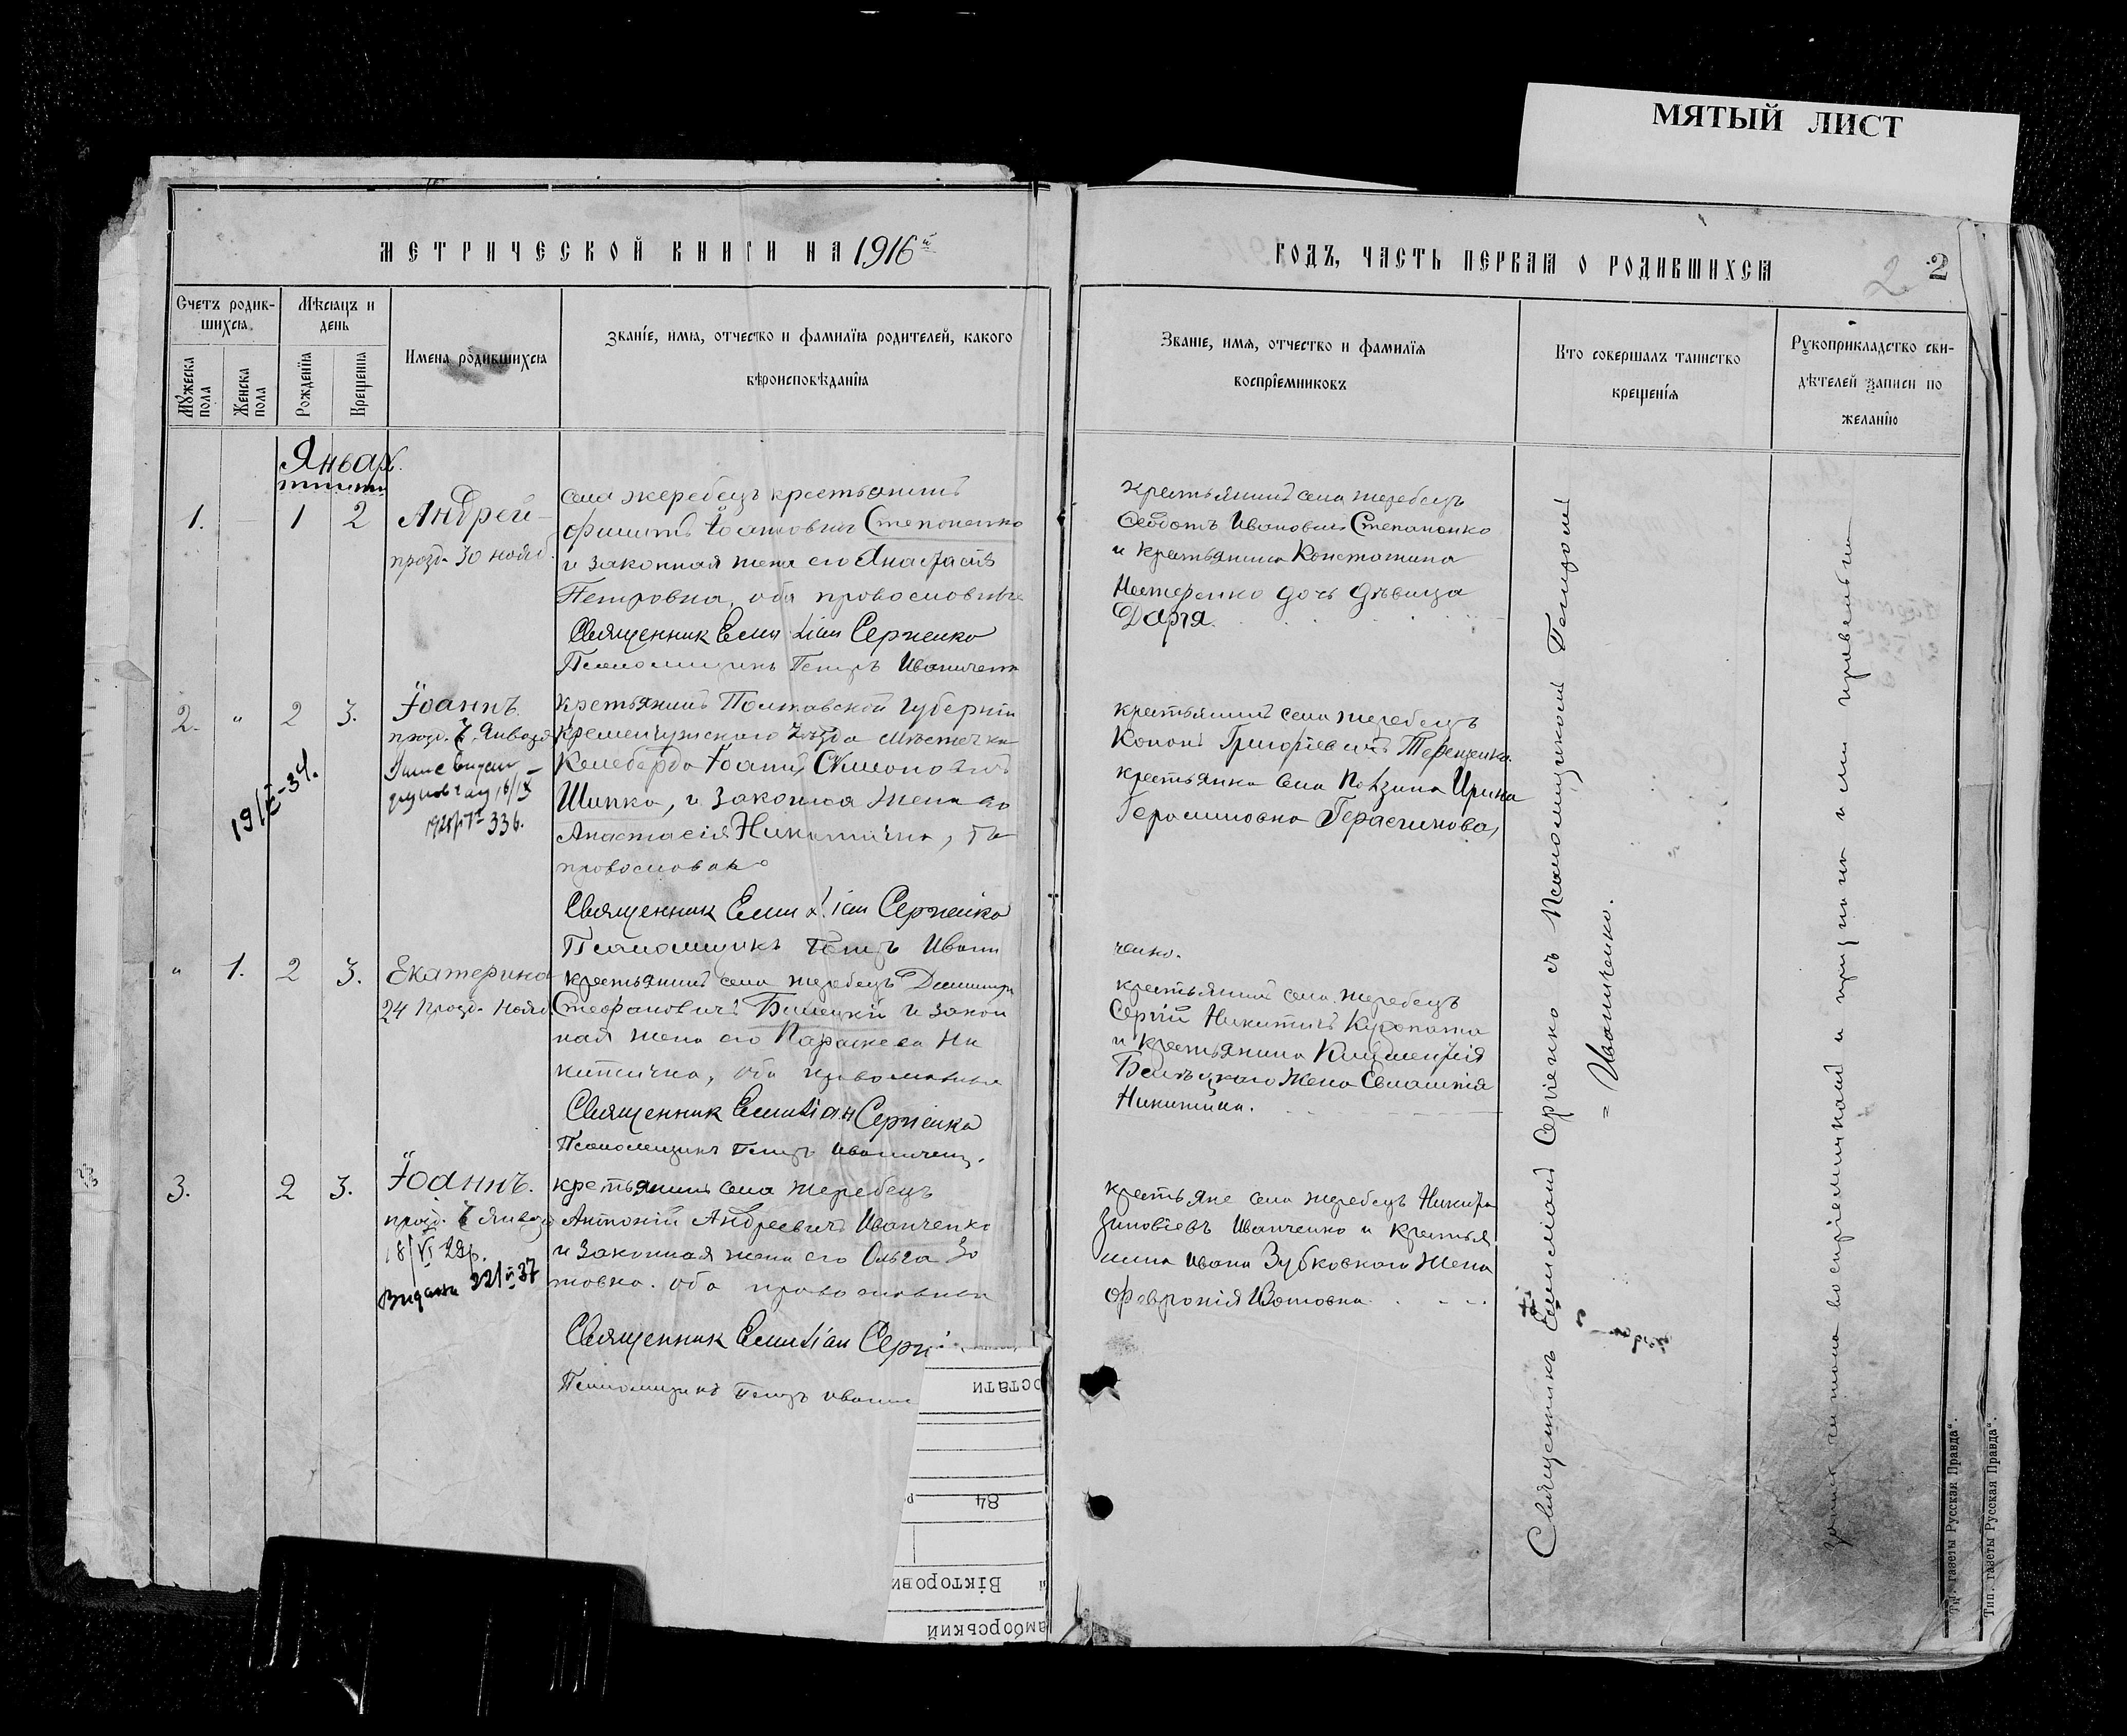 МЯТЫЙ ЛИСТ
МЕТРИЧЕСКОЙ КНИГИ НА 1916й
ГОДЪ, ЧАСТЬ ПЕРВАЯ О РОДИВШИХСЯ
2
2
Счетъ родив-
шихся
Мужеска пола
Женска пола
Мѣсяцъ и
день
Рожденїя
Крещенїя
Имена родившихся
Званїе, имя, отчество и фамилїя родителей, какого
вѣроисповѣданїя
Званїе, имя, отчество и фамилїя
воспрїемниковъ
Кто совершалъ таинство
крещенїя
Рукоприкладство сви-
дѣтелей записи по
желанїю
Январь
1. 1 2 Андрей
празд. 30 нояб.
села Жеребецъ крестьянинъ
Іоанновичъ Степаненко
и законная жена его Анастасія
Петровна, оба православные
Священник Емиліан Сергіенко
Псаломщикъ Петръ Иваниченко
крестьянинъ села Жеребецъ
Федотъ Ивановичъ Степаненко
и крестьянина Константина
Нестеренко дочь дѣвица
Дарія.
2. " 2 3. Іоаннъ
празд. 7 Января
336.
19/X-34.
крестьянинъ Полтавской губерніи
Кременчужского Уѣзда мѣстечка
Келеберда Іоаннъ Симоновичъ
Шипка, и законная жена его
Анастасія Никитична, оба
православные
Священник Емиліан Сергіенко
Псаломщикъ Петръ Ивани
ченко.
крестьянинъ села Жеребецъ
Кононъ Григорьевичъ Терещенко.
крестьянка села Ирина
Герасимовна Герасимова,
" 1. 2 3. Екатерина
24 празд. Нояб.
крестьянинъ села Жеребецъ Димитрій
Стефановичъ Билецкій и закон
ная жена его Параскева Ни
китична, оба православные
Священник Емиліан Сергіенко
Псаломщикъ Петръ Иваниченко.
крестьянинъ села Жеребецъ
Сергій Никитинъ Куропата
и крестьянина Климентія
Билецкого жена Евлампія
Никитина.
3. 2 3. Іоаннъ.
празд. 7 Января
18/VI 28р.
Видана 22/II 37
крестьянинъ села Жеребецъ
Антоній Андреевичъ Иванченко
и законная жена его Ольга Зо
товна. оба православные
Священник Емиліан Серг
Псаломщикъ Петръ Ивани
крестьяне села Жеребецъ Никифоръ
Зиновіевъ Иванченко и крестья
нина Ивана Зубковского жена
Февронія Зотовна
Священникъ Емиліанъ Сергіенко съ Псаломщикомъ Петромъ
= Иваниченко.
остати
84 р
Вікторови
амборський
Тип. газеты Русская Правда“.
Тип. газеты Русская Правда“.